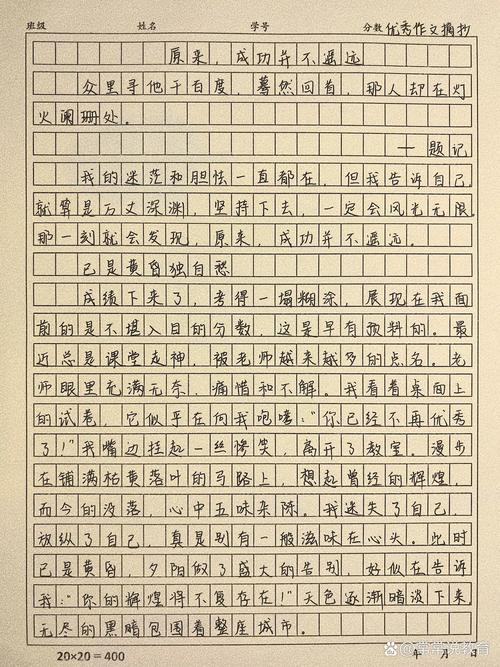 班级 姓名 学号 分数 优秀作文摘抄
原来，成功并不遥远
众里寻他千百度，蓦然回首，那人却在灯
火阑珊处。
——题记
我的迷茫和胆怯一直都在，但我告诉自己，
就算是万丈深渊，坚持下去，一定会风光无限，
那一刻就会发现，原来，成功并不遥远。
已是黄昏独自愁
成绩下来了，考得一塌糊涂，展现在我面
前的是不堪入目的分数，这是早有预料的。最
近总是课堂走神，被老师越来越多的点名。老
师眼里充满无奈，痛惜和不解。我看着桌面上
的试卷，它似乎在向我咆哮：“你已经不再优秀
了！”我嘴边挂起一丝惨笑，离开了教室。漫步
在铺满枯黄落叶的马路上，想起曾经的辉煌，
而今的没落，心中五味杂陈。我迷失了自己，
放纵了自己，真是别有一般滋味在心头。此时
已是黄昏，夕阳做了盛大的告别，好似在告诉
我：“你的辉煌将不复存在！”天色逐渐暗淡下来，
无尽的黑暗包围着整座城市。
20×20=400 年 月 日
@常常说教育